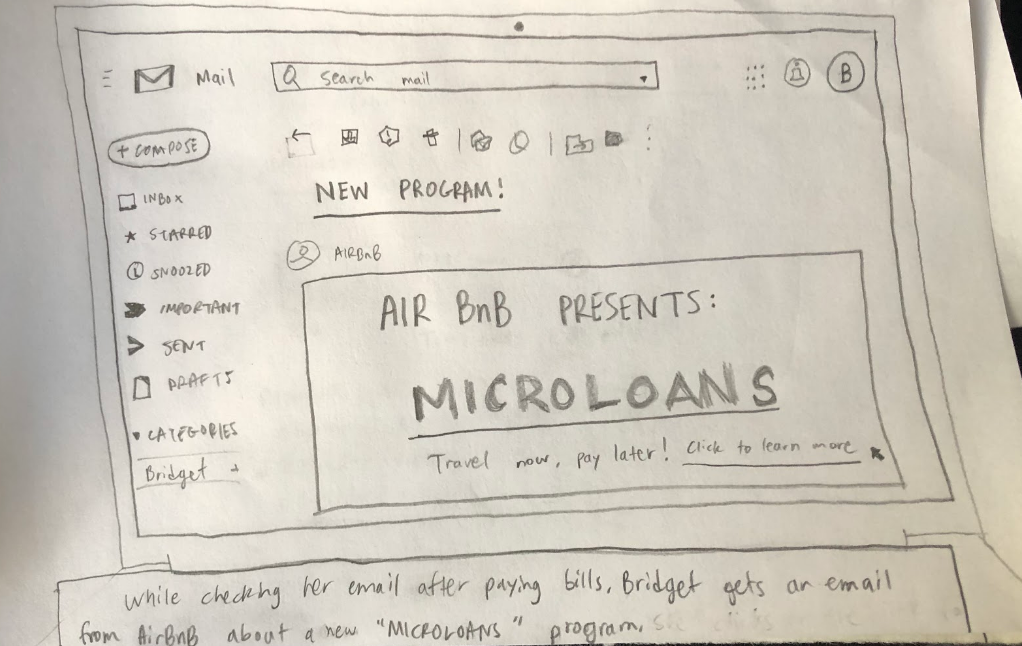 Mail
Search mail
B
+ COMPOSE
INBOX
STARRED
SNOOZED
IMPORTANT
SENT
DRAFTS
CATEGORIES
Bridget +
NEW PROGRAM!
AIRBnB
AIR BnB PRESENTS:
MICROLOANS
Travel now, pay later! Click to learn more
While checking her email after paying bills, Bridget gets an email
from AirBnB about a new "MICROLOANS" program.